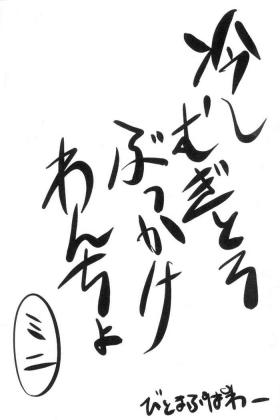 冷しむぎとろ
ぶっかけ
わんちょ
ミニ
びとまぷぱわー